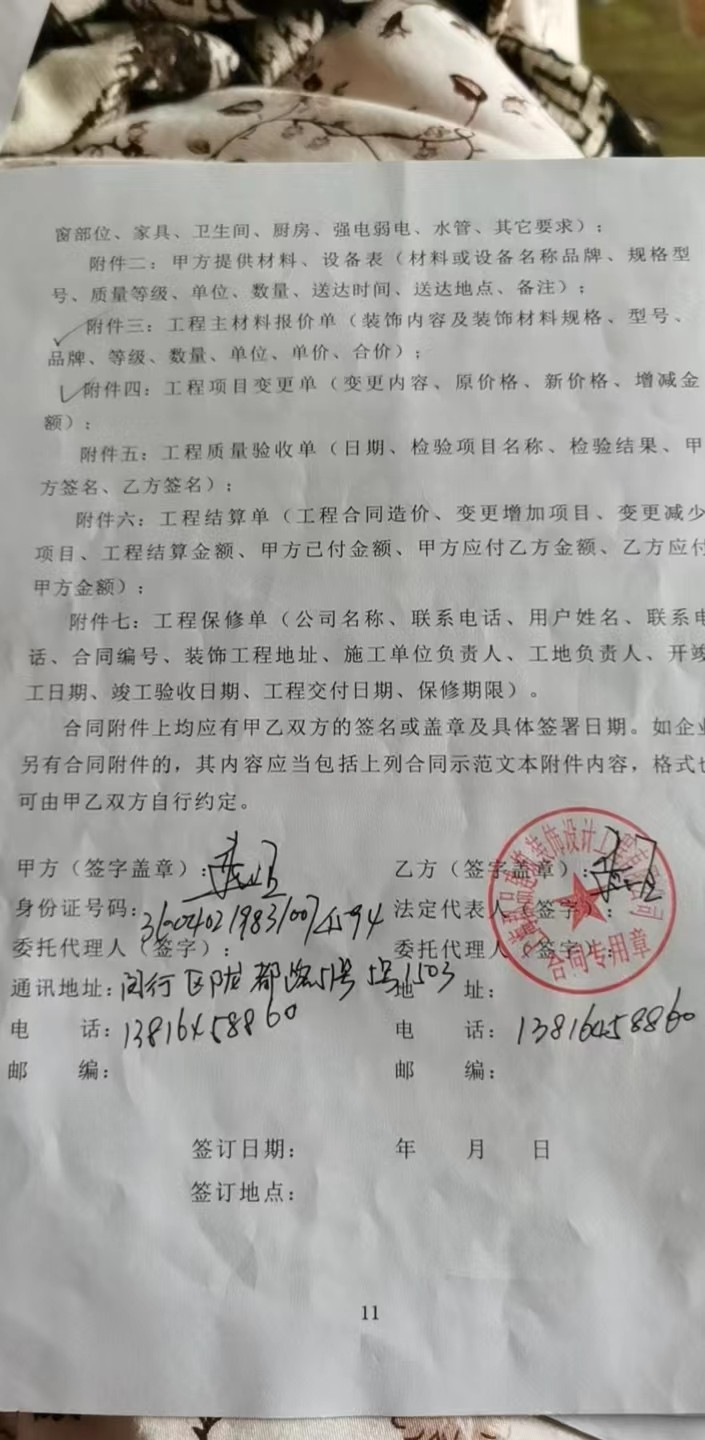 窗部位、家具、卫生间、厨房、强电弱电、水管、其它要求）；
附件二：甲方提供材料、设备表（材料或设备名称品牌、规格型
号、质量等级、单位、数量、送达时间、送达地点、备注）；
附件三：工程主材料报价单（装饰内容及装饰材料规格、型号、
品牌、等级、数量、单位、单价、合价）；
附件四：工程项目变更单（变更内容、原价格、新价格、增减金
额）；
附件五：工程质量验收单（日期、检验项目名称、检验结果、甲
方签名、乙方签名）；
附件六：工程结算单（工程合同造价、变更增加项目、变更减少
项目、工程结算金额、甲方已付金额、甲方应付乙方金额、乙方应付
甲方金额）；
附件七：工程保修单（公司名称、联系电话、用户姓名、联系电
话、合同编号、装饰工程地址、施工单位负责人、工地负责人、开竣
工日期、竣工验收日期、工程交付日期、保修期限）。
合同附件上均应有甲乙双方的签名或盖章及具体签署日期。如企业
另有合同附件的，其内容应当包括上列合同示范文本附件内容，格式也
可由甲乙双方自行约定。
甲方（签字盖章）： 乙方（签字盖章）：
身份证号码： 法定代表人（签字）：
委托代理人（签字）： 委托代理人（签字）：
通讯地址：闵行区陇都路51号5号1503 地 址：
电 话：13816458860 电 话：13816458860
邮 编： 邮 编：
装饰设计工程有限公司
合同专用章
签订日期： 年 月 日
签订地点：
11